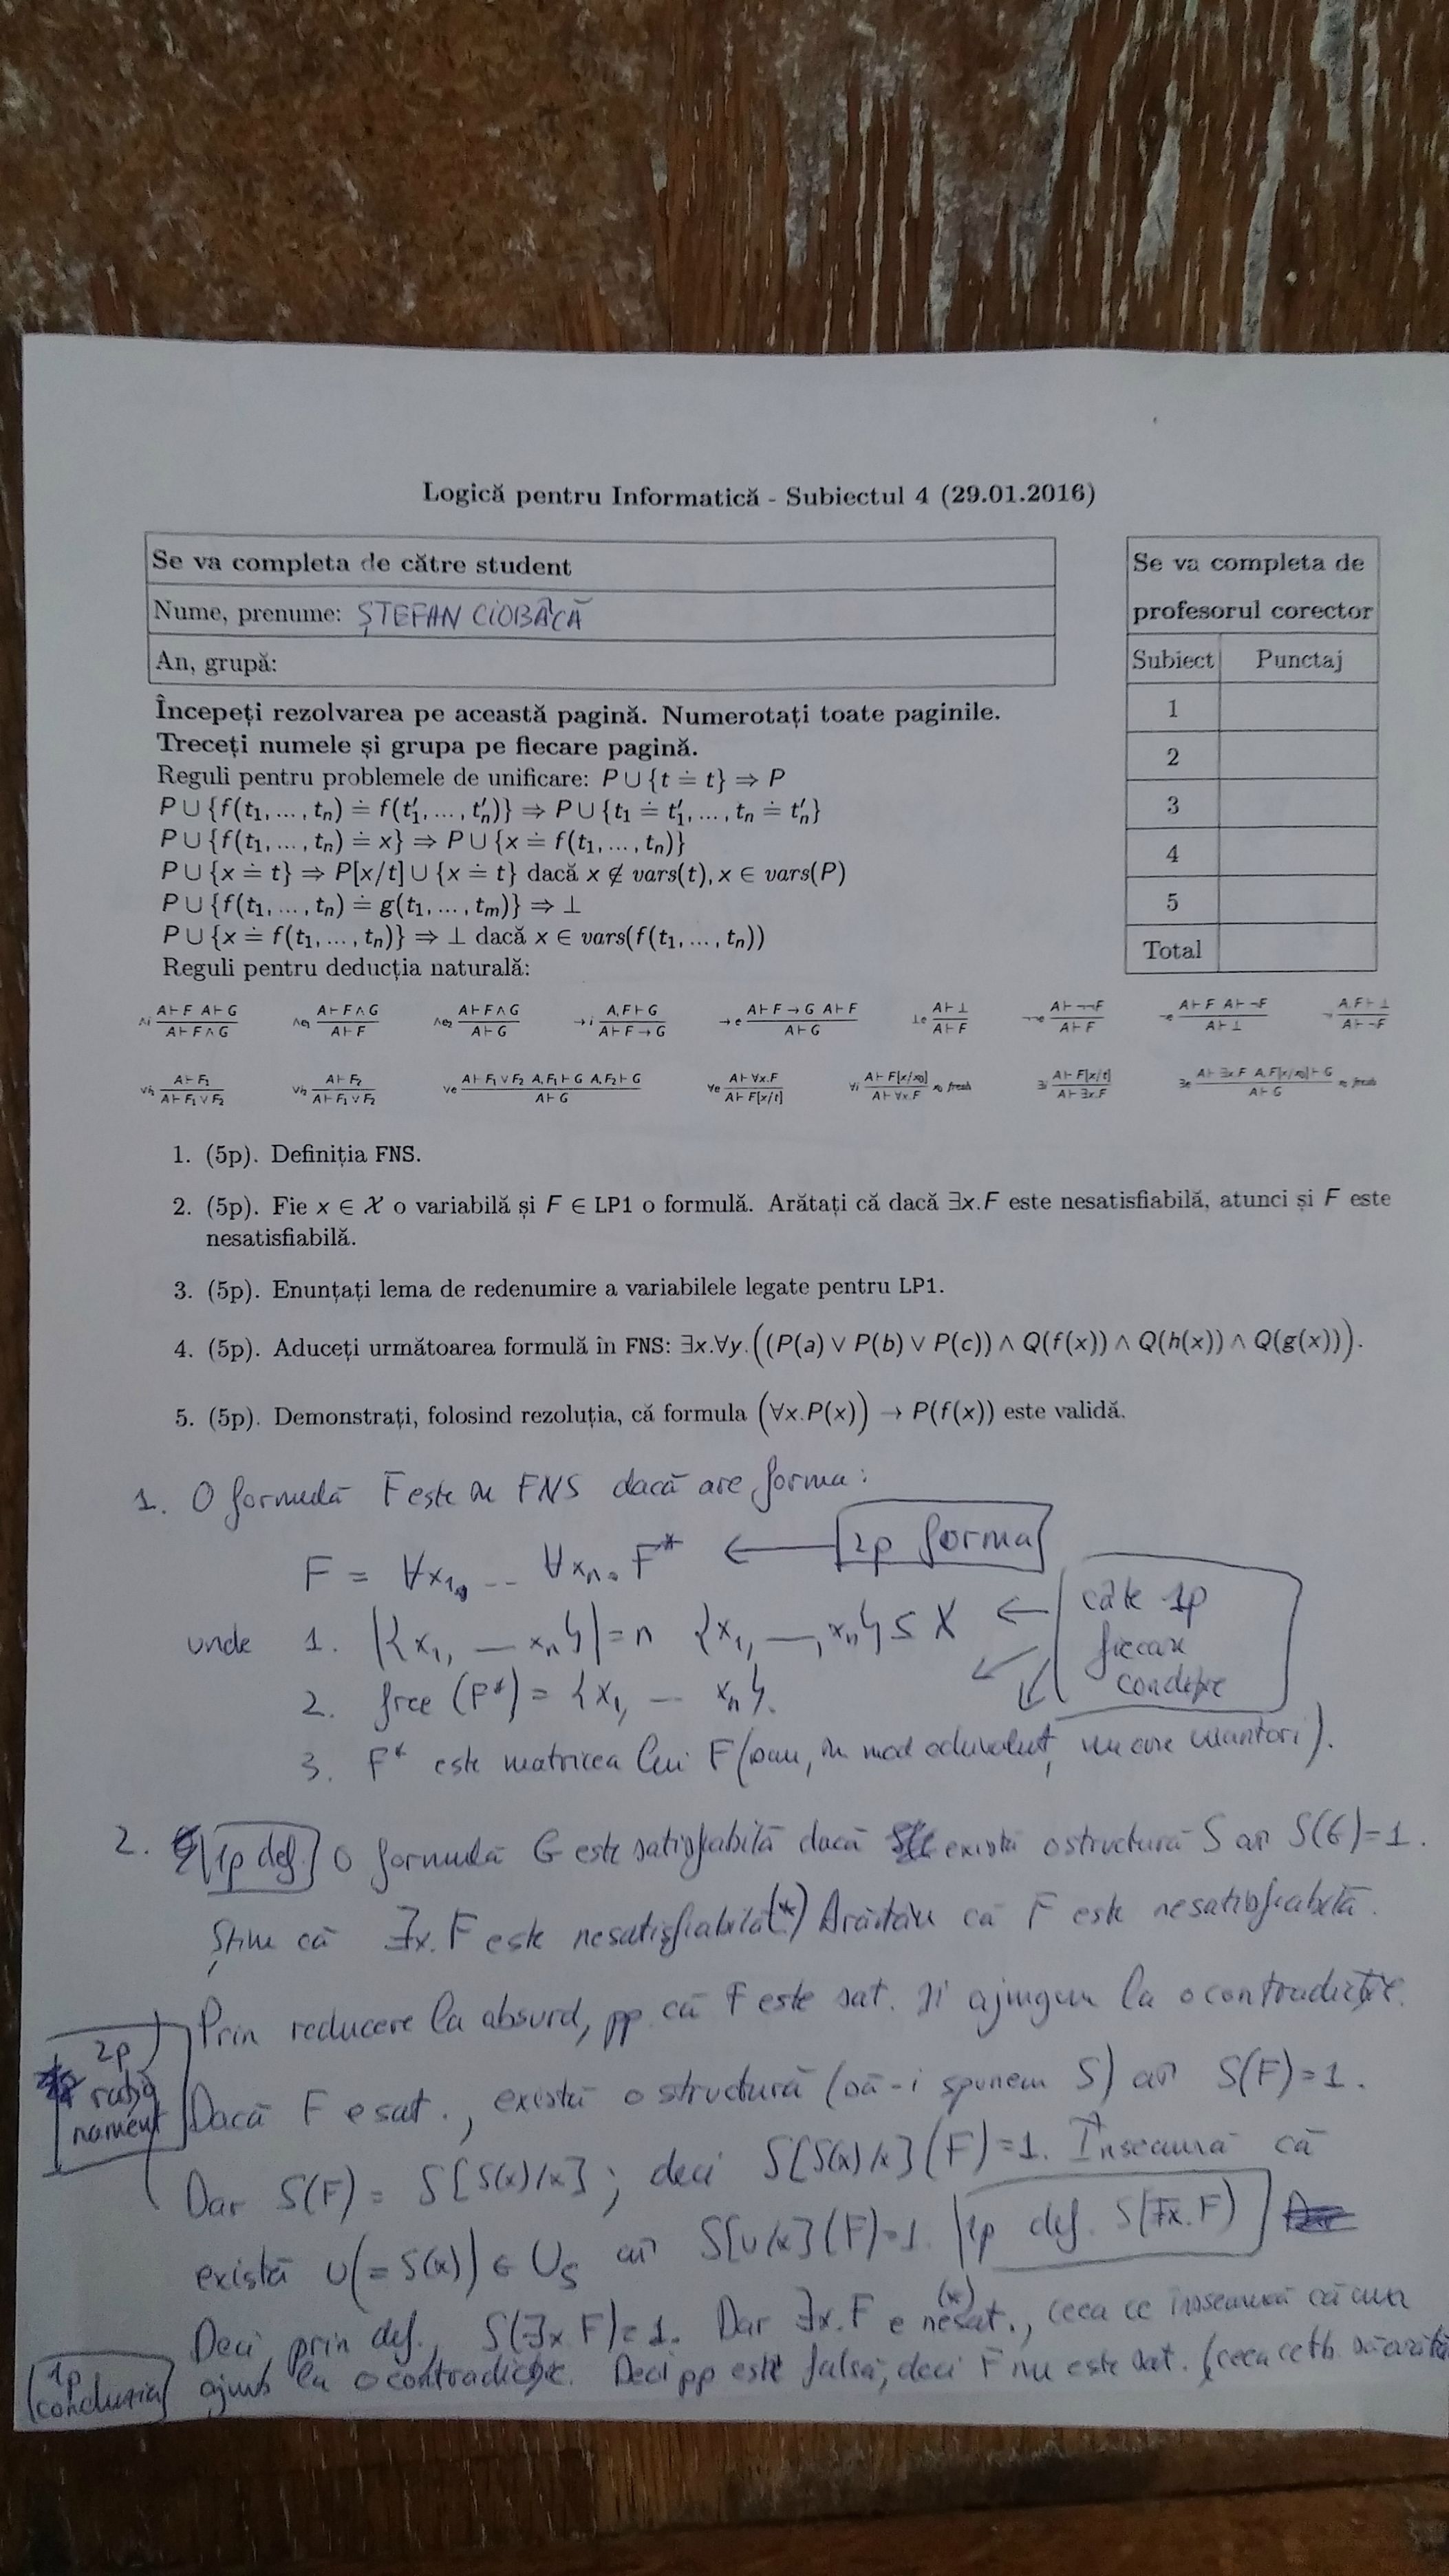 Logică pentru Informatică - Subiectul 4 (29.01.2016)
Se va completa de către student
Nume, prenume: ȘTEFAN CIOBÂCĂ
An, grupă:
Se va completa de
profesorul corector
Subiect Punctaj
1
2
3
4
5
Total
Începeți rezolvarea pe această pagină. Numerotați toate paginile.
Treceți numele și grupa pe fiecare pagină.
Reguli pentru problemele de unificare: P ∪ {t ≐ t} ⇒ P
P ∪ {f(t₁, ... , tₙ) ≐ f(t′₁, ... , t′ₙ)} ⇒ P ∪ {t₁ ≐ t′₁, ... , tₙ ≐ t′ₙ}
P ∪ {f(t₁, ... , tₙ) ≐ x} ⇒ P ∪ {x ≐ f(t₁, ... , tₙ)}
P ∪ {x ≐ t} ⇒ P[x/t] ∪ {x ≐ t} dacă x ∉ vars(t), x ∈ vars(P)
P ∪ {f(t₁, ... , tₙ) ≐ g(t₁, ... , tₘ)} ⇒ ⊥
P ∪ {x ≐ f(t₁, ... , tₙ)} ⇒ ⊥ dacă x ∈ vars(f(t₁, ... , tₙ))
Reguli pentru deducția naturală:
∧i A⊢F A⊢G / A⊢F∧G ∧e₁ A⊢F∧G / A⊢F ∧e₂ A⊢F∧G / A⊢G →i A,F⊢G / A⊢F→G →e A⊢F→G A⊢F / A⊢G ⊥e A⊢⊥ / A⊢F ¬¬e A⊢¬¬F / A⊢F ¬e A⊢F A⊢¬F / A⊢⊥ A,F⊢⊥ / A⊢¬F
∨i₁ A⊢F₁ / A⊢F₁∨F₂ ∨i₂ A⊢F₂ / A⊢F₁∨F₂ ∨e A⊢F₁∨F₂ A,F₁⊢G A,F₂⊢G / A⊢G ∀e A⊢∀x.F / A⊢F[x/t] ∀i A⊢F[x/x₀] / A⊢∀x.F x₀ fresh ∃i A⊢F[x/t] / A⊢∃x.F ∃e A⊢∃x.F A,F[x/x₀]⊢G / A⊢G x₀ fresh
1. (5p). Definiția FNS.
2. (5p). Fie x ∈ 𝒳 o variabilă și F ∈ LP1 o formulă. Arătați că dacă ∃x.F este nesatisfiabilă, atunci și F este
nesatisfiabilă.
3. (5p). Enunțați lema de redenumire a variabilele legate pentru LP1.
4. (5p). Aduceți următoarea formulă în FNS: ∃x.∀y.((P(a) ∨ P(b) ∨ P(c)) ∧ Q(f(x)) ∧ Q(h(x)) ∧ Q(g(x))).
5. (5p). Demonstrați, folosind rezoluția, că formula (∀x.P(x)) → P(f(x)) este validă.
1. O formulă F este în FNS dacă are forma:
F = ∀x₁. ... ∀xₙ. F* ← 2p forma
unde 1. |{x₁, — xₙ}| = n {x₁, —, xₙ} ⊆ X ← câte 1p
fiecare
condiție
2. free (F*) = {x₁, — xₙ}.
3. F* este matricea lui F (sau, în mod echivalent, nu are cuantori).
2. 1p def. O formulă G este satisfiabilă dacă există o structură S aî S(G)=1.
Știm că ∃x.F este nesatisfiabilă(*) Arătăm că F este nesatisfiabilă.
Prin reducere la absurd, pp. că F este sat. și ajungem la o contradicție.
2p
raționament
Dacă F e sat., există o structură (să-i spunem S) aî S(F)=1.
Dar S(F) = S[S(x)/x]; deci S[S(x)/x](F)=1. Înseamnă că
există u(=S(x)) ∈ U_S aî S[u/x](F)=1. 1p def. S(∃x.F)
Deci, prin def., S(∃x.F)=1. Dar ∃x.F e nesat.(*), ceea ce înseamnă că am
1p
concluzia
ajuns la o contradicție. Deci pp este falsă, deci F nu este sat. (ceea ce tb. să arăt